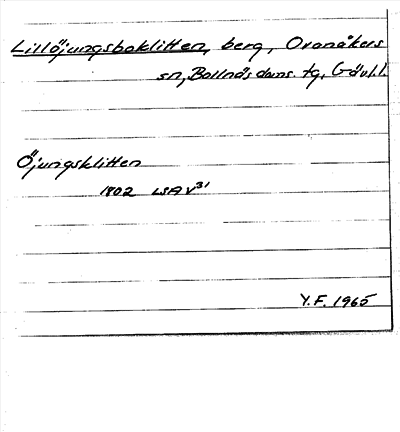 Lillöjungsboklitten, berg, Ovanåkers
sn, Bollnäs doms. tg, Gävl.l.
Öjungsklitten
1802 LSA V31
Y.F. 1965